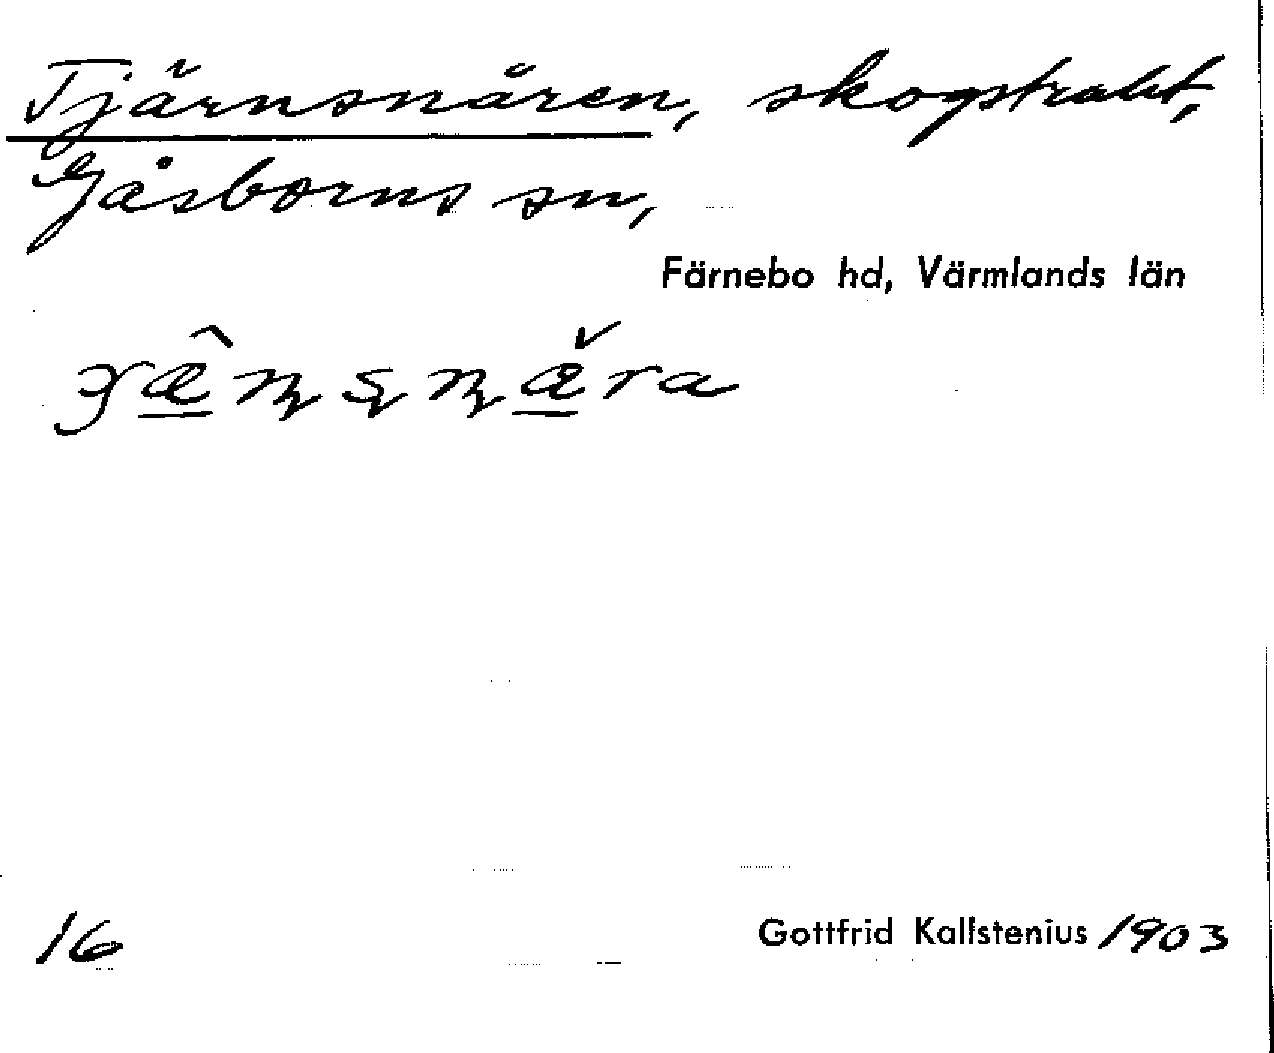 Tjärnsnären, skogstrakt,
Gåsborns sn,
Färnebo hd, Värmlands län
16
Gottfrid Kallstenius 1903